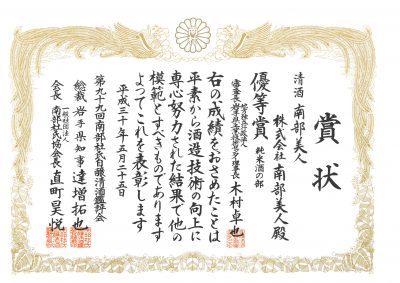 賞状
清酒 南部美人
株式会社南部美人殿
優等賞 純米酒の部
地方独立行政法人
審査長 岩手県工業技術センター理事長 木村卓也
右の成績をおさめたことは
平素から酒造技術の向上に
専心努力された結果で他の
模範とすべきものであります
よつてこれを表彰します
平成三十年五月二十五日
第九十九回南部杜氏自醸清酒鑑評会
総裁 岩手県知事 達増拓也
一般社団法人
会長 南部杜氏協会長 直町昊悦